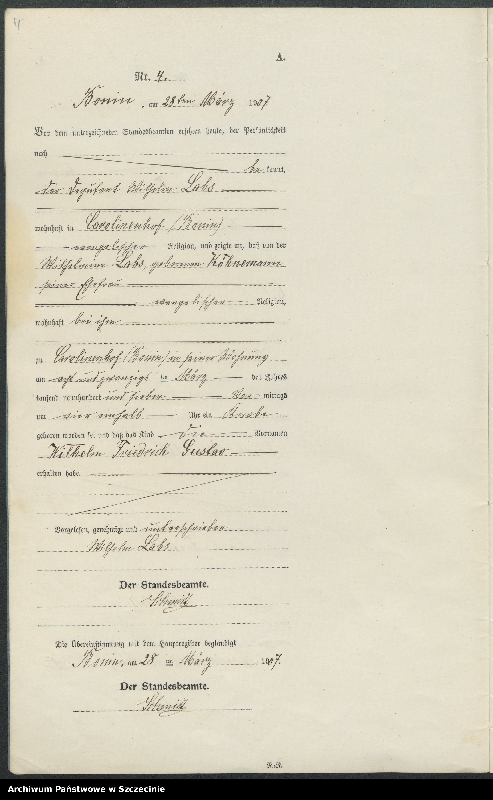 4
A.
Nr. 7.
Bonin, am 28ten März 1907
Vor dem unterzeichneten Standesbeamten erschien heute, der Persönlichkeit
nach
be kannt,
der Deputant Wilhelm Labs
wohnhaft in Carolinenhof (Bonin)
evangelischer Religion, und zeigte an, daß von der
Wilhelmine Labs, geborenen Köhnemann
seiner Ehefrau
evangelischer Religion,
wohnhaft bei ihm
zu Carolinenhof (Bonin) in seiner Wohnung
am acht und zwanzigsten März des Jahres
tausend neunhundert und sieben Vormittags
um vier einhalb Uhr ein Knabe
geboren worden sei und daß das Kind die Vornamen
Wilhelm Friedrich Gustav
erhalten habe.
Vorgelesen, genehmigt und unterschrieben
Wilhelm Labs
Der Standesbeamte.
Die Übereinstimmung mit dem Hauptregister beglaubigt
Bonin, am 28 ten März 1907.
Der Standesbeamte.
Archiwum Państwowe w Szczecinie